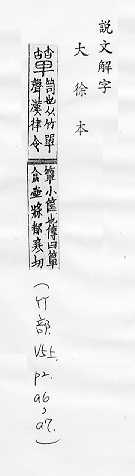 說文解字
大徐本
簞笥也从竹單
聲漢律令
簞小筐也傳曰簞
食壺漿都寒切
(竹部
V5上
P2.
a6,
a7.)